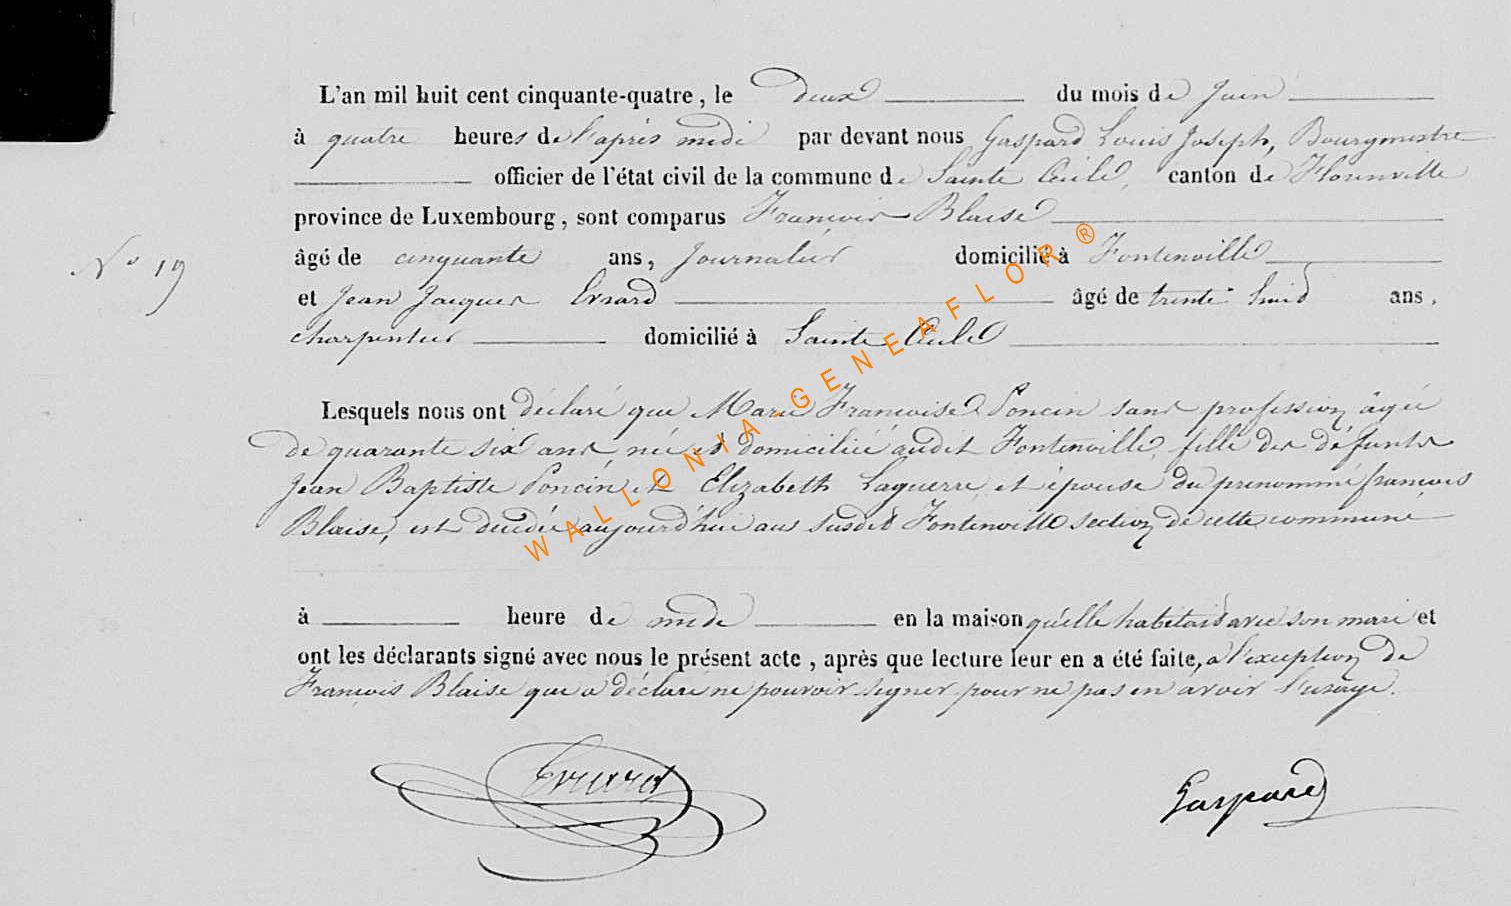 L'an mil huit cent cinquante-quatre, le deux du mois de Juin
à quatre heures de l'après midi par devant nous Gaspard Louis Joseph, Bourgmestre
officier de l'état civil de la commune de Sainte Cécile, canton de Florenville
province de Luxembourg, sont comparus François Blaise
N° 19
âgé de cinquante ans, Journalier domicilié à Fontenoille
et Jean Jacques Evrard âgé de trente huit ans,
charpentier domicilié à Sainte Cécile
Lesquels nous ont déclaré que Marie Françoise Poncin sans profession âgée
de quarante six ans, née et domiciliée audit Fontenoille, fille des défunts
Jean Baptiste Poncin et Elizabeth Laguerre, et épouse du prénommé françois
Blaise, est décédée aujourd'hui au susdit Fontenoille section de cette commune
à heure de midi en la maison qu'elle habitait avec son mari et
ont les déclarants signé avec nous le présent acte, après que lecture leur en a été faite, a l'exception de
François Blaise que a déclaré ne pouvoir signer pour ne pas en avoir l'usage.
Evrard Gaspard
WALLONIA-GENEAFLOR®